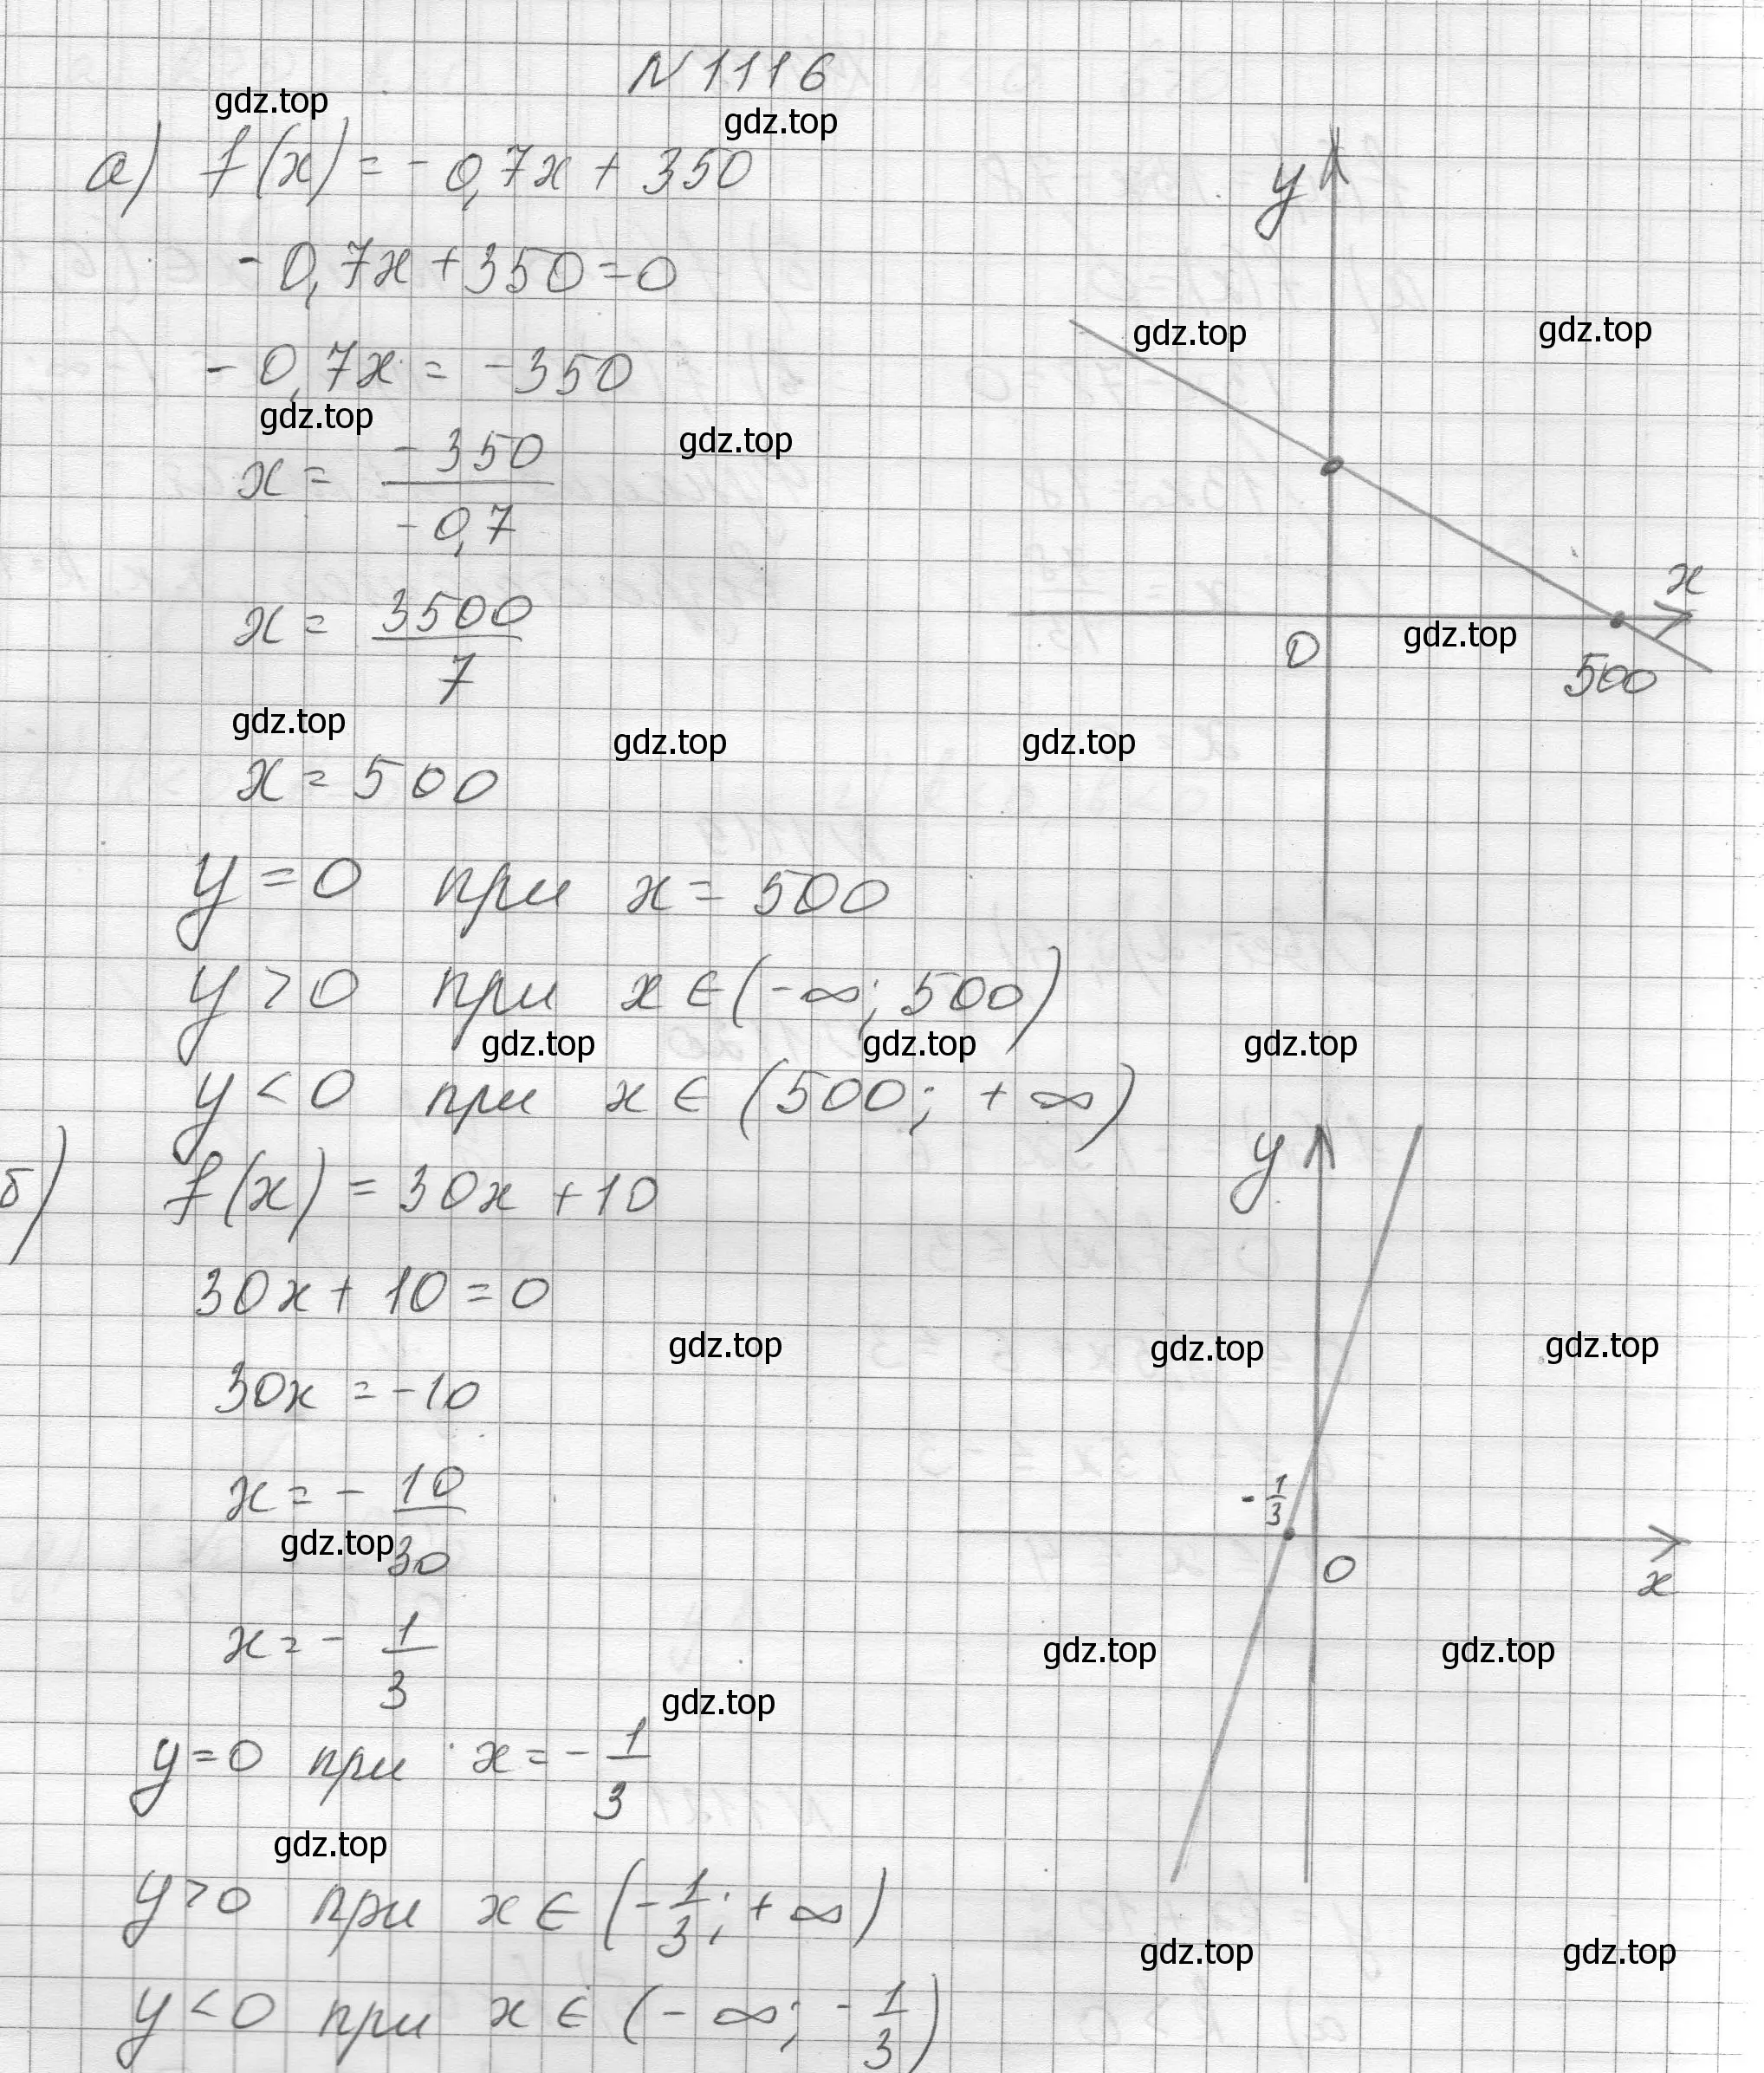 N 1116
gdz.top
gdz.top
а) f(x) = - 0,7x + 350
- 0,7x + 350 = 0
gdz.top
gdz.top
- 0,7x = - 350
gdz.top
gdz.top
x = -350/-0,7
x = 3500/7
gdz.top
gdz.top
gdz.top
x = 500
y
x
gdz.top
0
500
y = 0 при x = 500
y > 0 при x ∈ (-∞; 500)
gdz.top
gdz.top
gdz.top
y < 0 при x ∈ (500; +∞)
б) f(x) = 30x + 10
30x + 10 = 0
gdz.top
gdz.top
gdz.top
30x = -10
x = - 10/30
gdz.top
x = - 1/3
y
- 1/3
0
x
gdz.top
gdz.top
gdz.top
y = 0 при x = - 1/3
gdz.top
y > 0 при x ∈ (- 1/3; +∞)
gdz.top
gdz.top
y < 0 при x ∈ (- ∞; - 1/3)